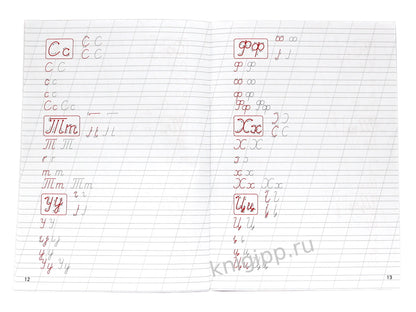 Сс С С
С С
С С
с с
с с
Сс Сс
Тт
Т Т
г г
т т
Тт Тт
Уу
У У
у у
у у
Уу Уу
12
Фф
ф ф
ф ф
Фф Фф
Хх
Х Х
х х
Хх Хх
Цц
Ц Ц
13
knigipp.ru